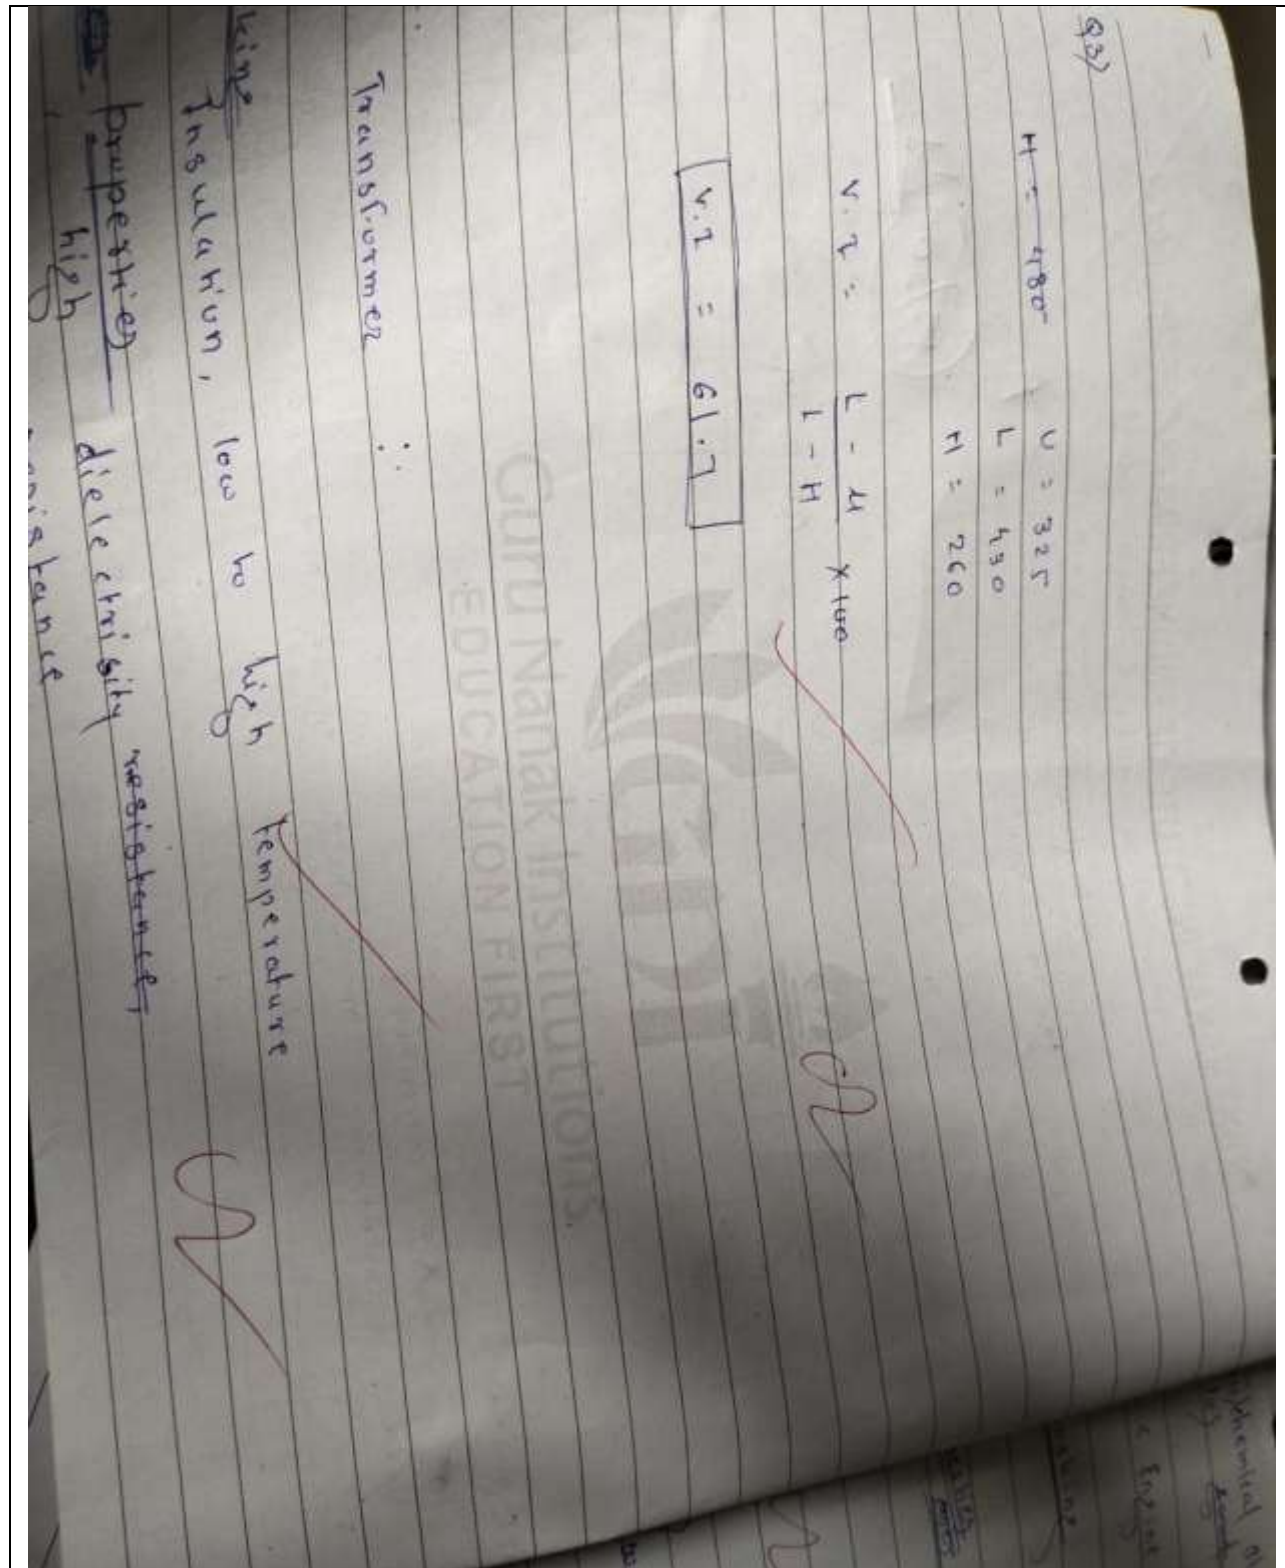 Q3)
H = 480
U = 325
L = 430
H = 260
V.I = L - U / L - H × 100
V.I = 61.7
Guru Nanak Institutions
EDUCATION FIRST
Transformer :
Insulation, low to high temperature
properties
high dielectrisity resistance,